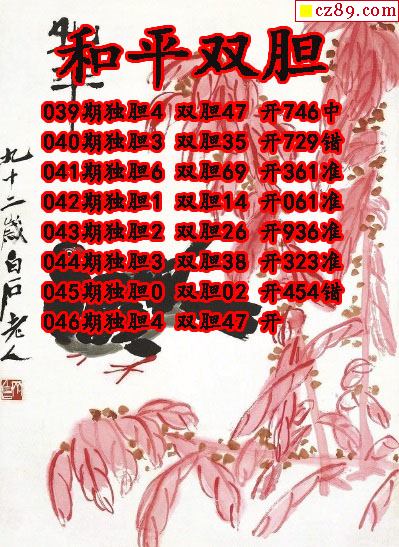 cz89.com
和平双胆
039期独胆4 双胆47 开746中
040期独胆3 双胆35 开729错
041期独胆6 双胆69 开361准
042期独胆1 双胆14 开061准
043期独胆2 双胆26 开936准
044期独胆3 双胆38 开323准
045期独胆0 双胆02 开454错
046期独胆4 双胆47 开
九十二岁白石老人